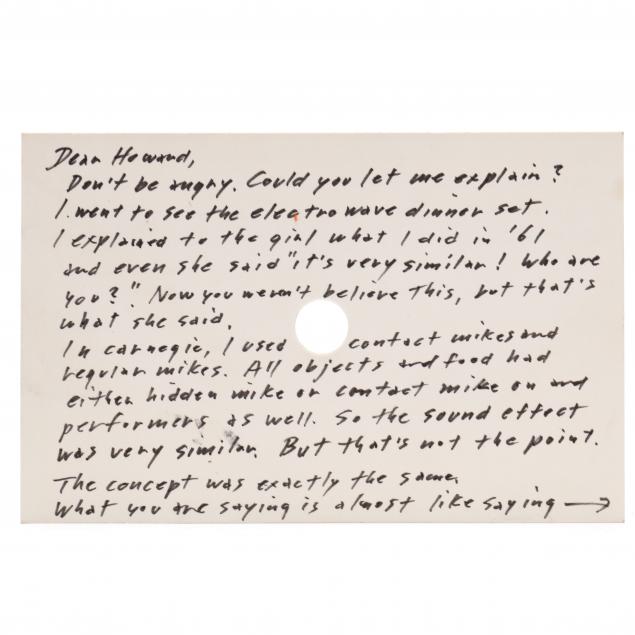 Dear Howard,
Don't be angry. Could you let me explain?
I went to see the electro wave dinner set.
I explained to the girl what I did in '61
and even she said "it's very similar! Who are
you?". Now you weren't believe this, but that's
what she said.
In carnegie, I used contact mikes and
regular mikes. All objects and food had
either hidden mike or contact mike on and
performers as well. So the sound effect
was very similar. But that's not the point.
The concept was exactly the same.
What you are saying is almost like saying →